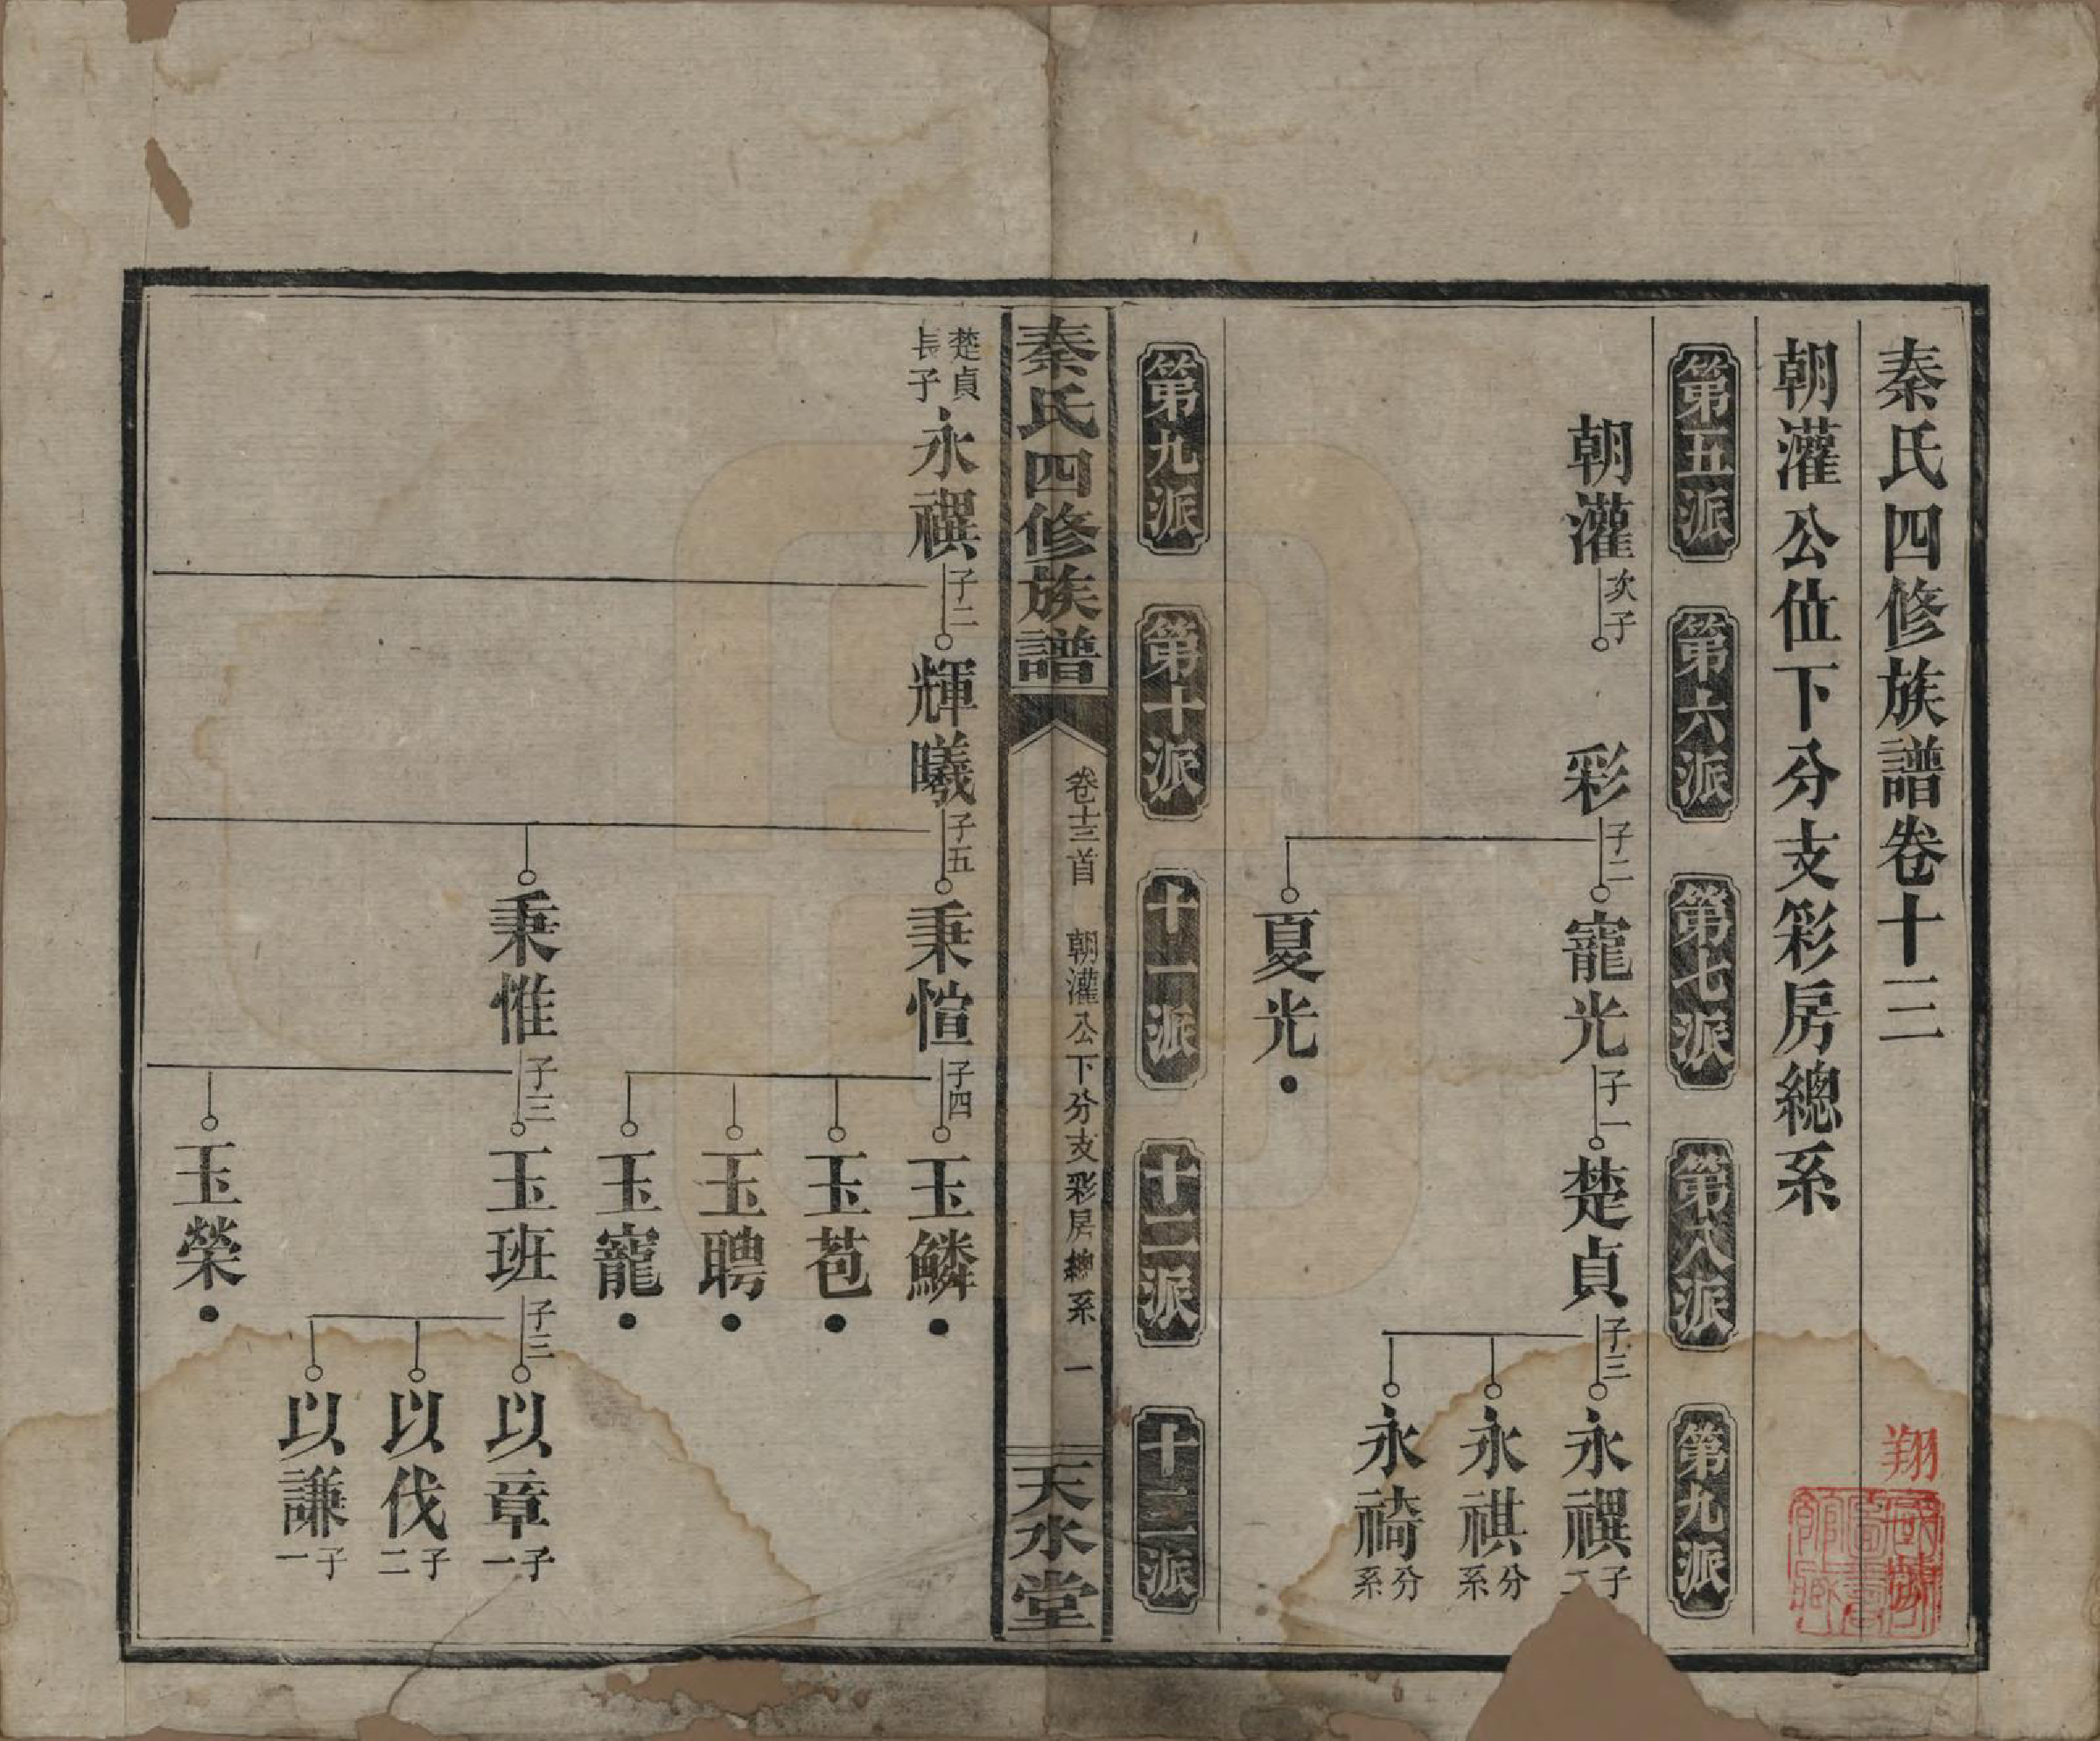 秦氏四修族譜卷十三
朝灌公位下分支彩房總系
第五派
第六派
第七派
第八派
第九派
朝灌
次子
彩
子二
寵光
子一
楚貞
子三
永禩
子二
永祺
分系
永䄎
分系
夏光
第九派
第十派
十一派
十二派
十三派
秦氏四修族譜
卷十三首
朝灌公下分支彩房總系
一
天水堂
楚貞長子
永禩
子二
輝曦
子五
秉愃
子四
玉鱗
玉苞
玉聘
玉寵
秉惟
子三
玉班
子三
以章
子一
以伐
子二
以謙
子一
玉榮
翔